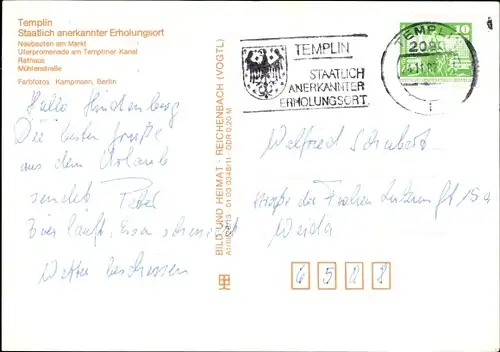 Templin
Staatlich anerkannter Erholungsort
Neubauten am Markt
Uferpromenade am Templiner Kanal
Rathaus
Mühlenstraße
Farbfotos: Kampmann, Berlin
Hallo Hindenberg
Die besten Grüße
aus dem Urlaub
sendet Peter
Bier läuft, Essen schmeckt
Wetter beschissen
BILD UND HEIMAT · REICHENBACH (VOGTL)
01 03 0348/11 · DDR 0,20 M
TEMPLIN
STAATLICH
ANERKANNTER
ERHOLUNGSORT.
TEMPLIN
10
Welfried Schubert
Straße der
15a
Weida
6 5 0 8